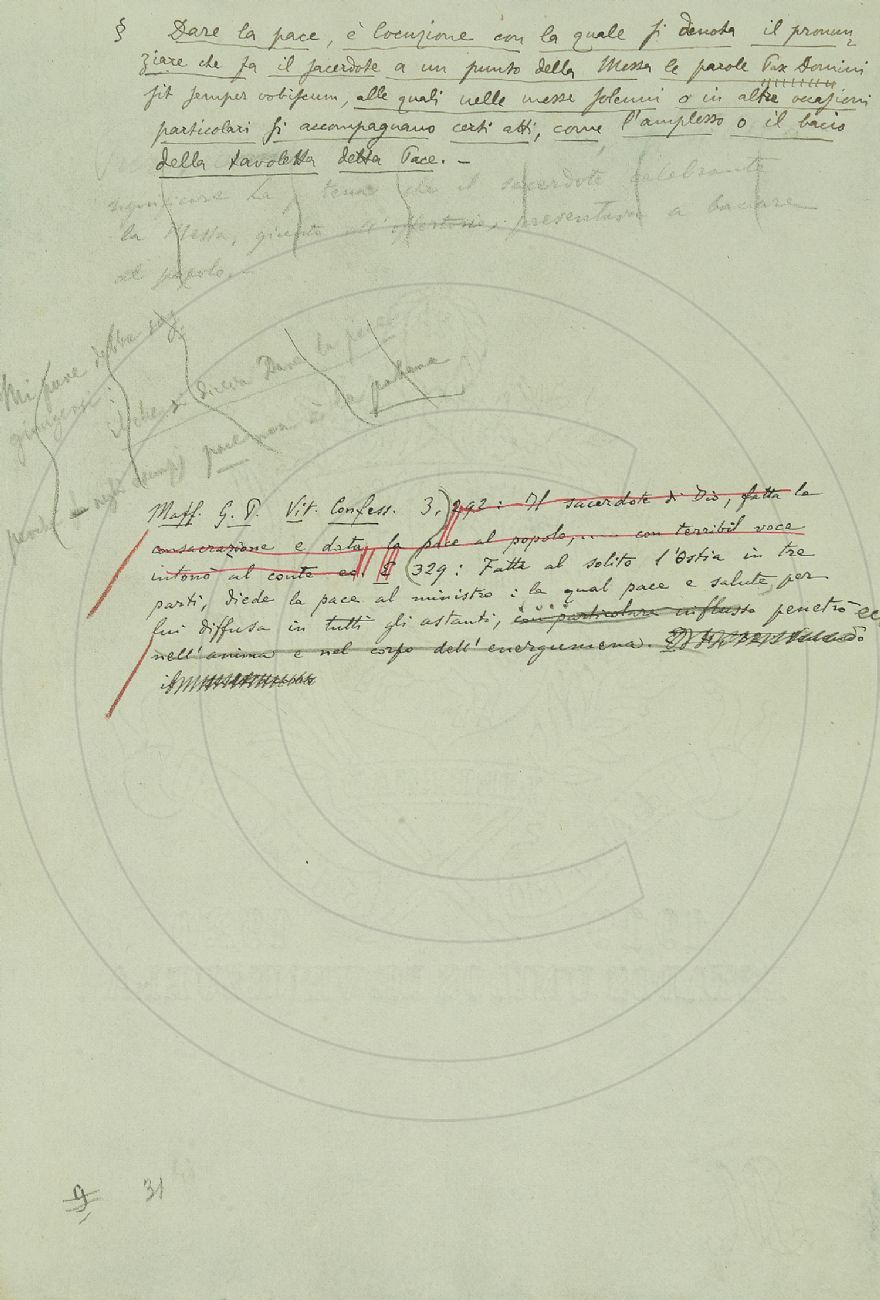 § Dare la pace, è locuzione con la quale si denota il pronun
ziare che fa il sacerdote a un punto della Messa le parole Pax Domini
sit semper vobiscum, alle quali nelle messe solenni o in altre occasioni
particolari si accompagnano certi atti, come l'amplesso o il bacio
della tavoletta detta Pace. –
significare la che il sacerdote celebrante
la Messa, giunto all'offertorio, presentava a baciare
al popolo. –
Mi pare debba ag
giungersi
il che si diceva Dare la pace
perchè negli esempj pace non è la patena
Maff. G. P. Vit. Confess. 3, 292: Il sacerdote di Dio, fatta la
consacrazione e data la pace al popolo,.... con terribil voce
intonò al conte ec. E 329: Fatta al solito l'Ostia in tre
parti, diede la pace al ministro: la qual pace e salute, per
lui diffusa in tutti gli astanti, con particolare influsso penetrò ec
nell'anima e nel corpo dell'energumena.
9 31